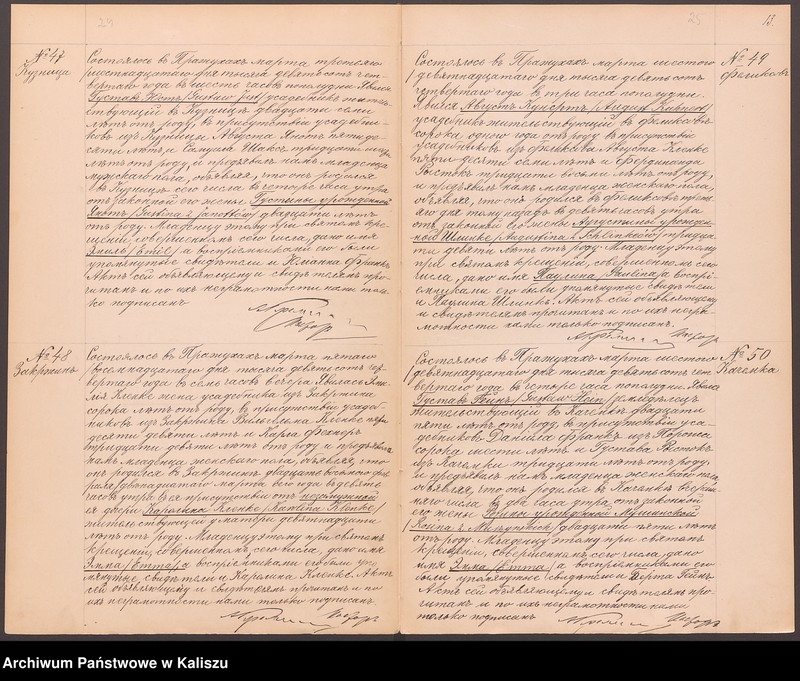 24
№ 47
Кузница
Состоялось въ Пражухахъ марта третьяго
шестнадцатаго дня тысяча девятьсотъ чет-
вертаго года въ шесть часовъ пополудни. Явился
Густавъ /Gustaw усадебникъ житель-
ствующій въ Кузницѣ двадцати семи
лѣтъ отъ роду, въ присутствіи усадебни-
ковъ изъ Кузницы Августа пятиде-
сяти лѣтъ и Самуила тридцати
лѣтъ отъ роду, и предъявилъ намъ младенца
мужскаго пола, объявляя, что онъ родился
въ Кузницѣ сего числа въ часа утра
отъ законной его жены Густыны урожденной
Янотъ /Justina z Janottów/ двадцати лѣтъ
отъ роду. Младенцу этому при святомъ кре-
щеніи, совершенномъ сего числа, дано имя
Эмиль /Emil/ а воспріемниками его были
упомянутые свидѣтели и
Актъ сей объявляющему и свидѣтелямъ про-
читанъ и по ихъ неграмотности нами толь-
ко подписанъ
№ 48
Закржинъ
Состоялось въ Пражухахъ марта пятаго
восемнадцатаго дня тысяча девятьсотъ чет-
вертаго года въ семь часовъ вечера. Явилась
Кленке жена усадебника изъ Закржина
сорока лѣтъ отъ роду, въ присутствіи усадеб-
никовъ изъ Закржина Вильгельма Кленке
десяти девяти лѣтъ и Карла Фехнеръ
тридцати девяти лѣтъ отъ роду и предъявила
намъ младенца женскаго пола, объявляя, что
онъ родился въ Закржинѣ двадцать восьмаго фев-
раля /двѣнадцатаго марта сего года въ девять
часовъ утра отъ незамужней
ея дочери Каролины Кленке /Karolina Klenke/
жительствующей у матери девятнадцати
лѣтъ отъ роду. Младенцу этому при святомъ
крещеніи, совершенномъ сего числа, дано имя
Эмма /Emma/ а воспріемниками его были упо-
мянутые свидѣтели и Каролина Кленке. Актъ
сей объявляющему и свидѣтелямъ прочитанъ и по
ихъ неграмотности нами только подписанъ
25
13.
№ 49
Фоликсовъ
Состоялось въ Пражухахъ марта шестого
/девятнадцатаго дня тысяча девятьсотъ
четвертаго года въ три часа пополудни.
Явился Августъ Кунертъ /August Kunert/
усадебникъ жительствующій въ
сорока одного года отъ роду въ присутствіи
усадебниковъ изъ Августа Кленке
пяти-десяти семи лѣтъ и Фердинанда
Ростокъ тридцати восьми лѣтъ отъ роду,
и предъявилъ намъ младенца женскаго пола,
объявляя, что онъ родился въ
дня тому назадъ въ девять часовъ утра
отъ законной его жены Августины урожден-
ной Шлинке /Augustina z Schlinków/ тридца-
ти девяти лѣтъ отъ роду. Младенцу этому
при святомъ крещеніи, совершенномъ сего
числа, дано имя Паулина /Paulina/ а воспрі-
емниками его были упомянутые свидѣтели
и Паулина Шлинке. Актъ сей объявляющему
и свидѣтелямъ прочитанъ и по ихъ негра-
мотности нами только подписанъ.
№ 50
Каченка
Состоялось въ Пражухахъ марта шестого
/девятнадцатаго дня тысяча девятьсотъ чет-
вертаго года въ часа пополудни. Явился
Густавъ Гейнъ /Gustaw Hein/ земледѣлецъ
жительствующій въ Каченкѣ двадцати
пяти лѣтъ отъ роду, въ присутствіи уса-
дебниковъ Даніила Франкъ изъ
сорока шести лѣтъ и Густава Ростокъ
изъ Каченки тридцати лѣтъ отъ роду.
и предъявилъ намъ младенца женскаго пола
объявляя, что онъ родился въ Каченкѣ
няго числа въ два часа утра отъ законной
его жены урожденной
двадцати пяти лѣтъ
отъ роду. Младенцу этому при святомъ
крещеніи, совершенномъ сего числа, дано
имя Эмма /Emma/ а воспріемниками его
были упомянутые свидѣтели и Берта Гейнъ.
Актъ сей объявляющему и свидѣтелямъ про-
читанъ и по ихъ неграмотности нами
только подписанъ
Archiwum Państwowe w Kaliszu